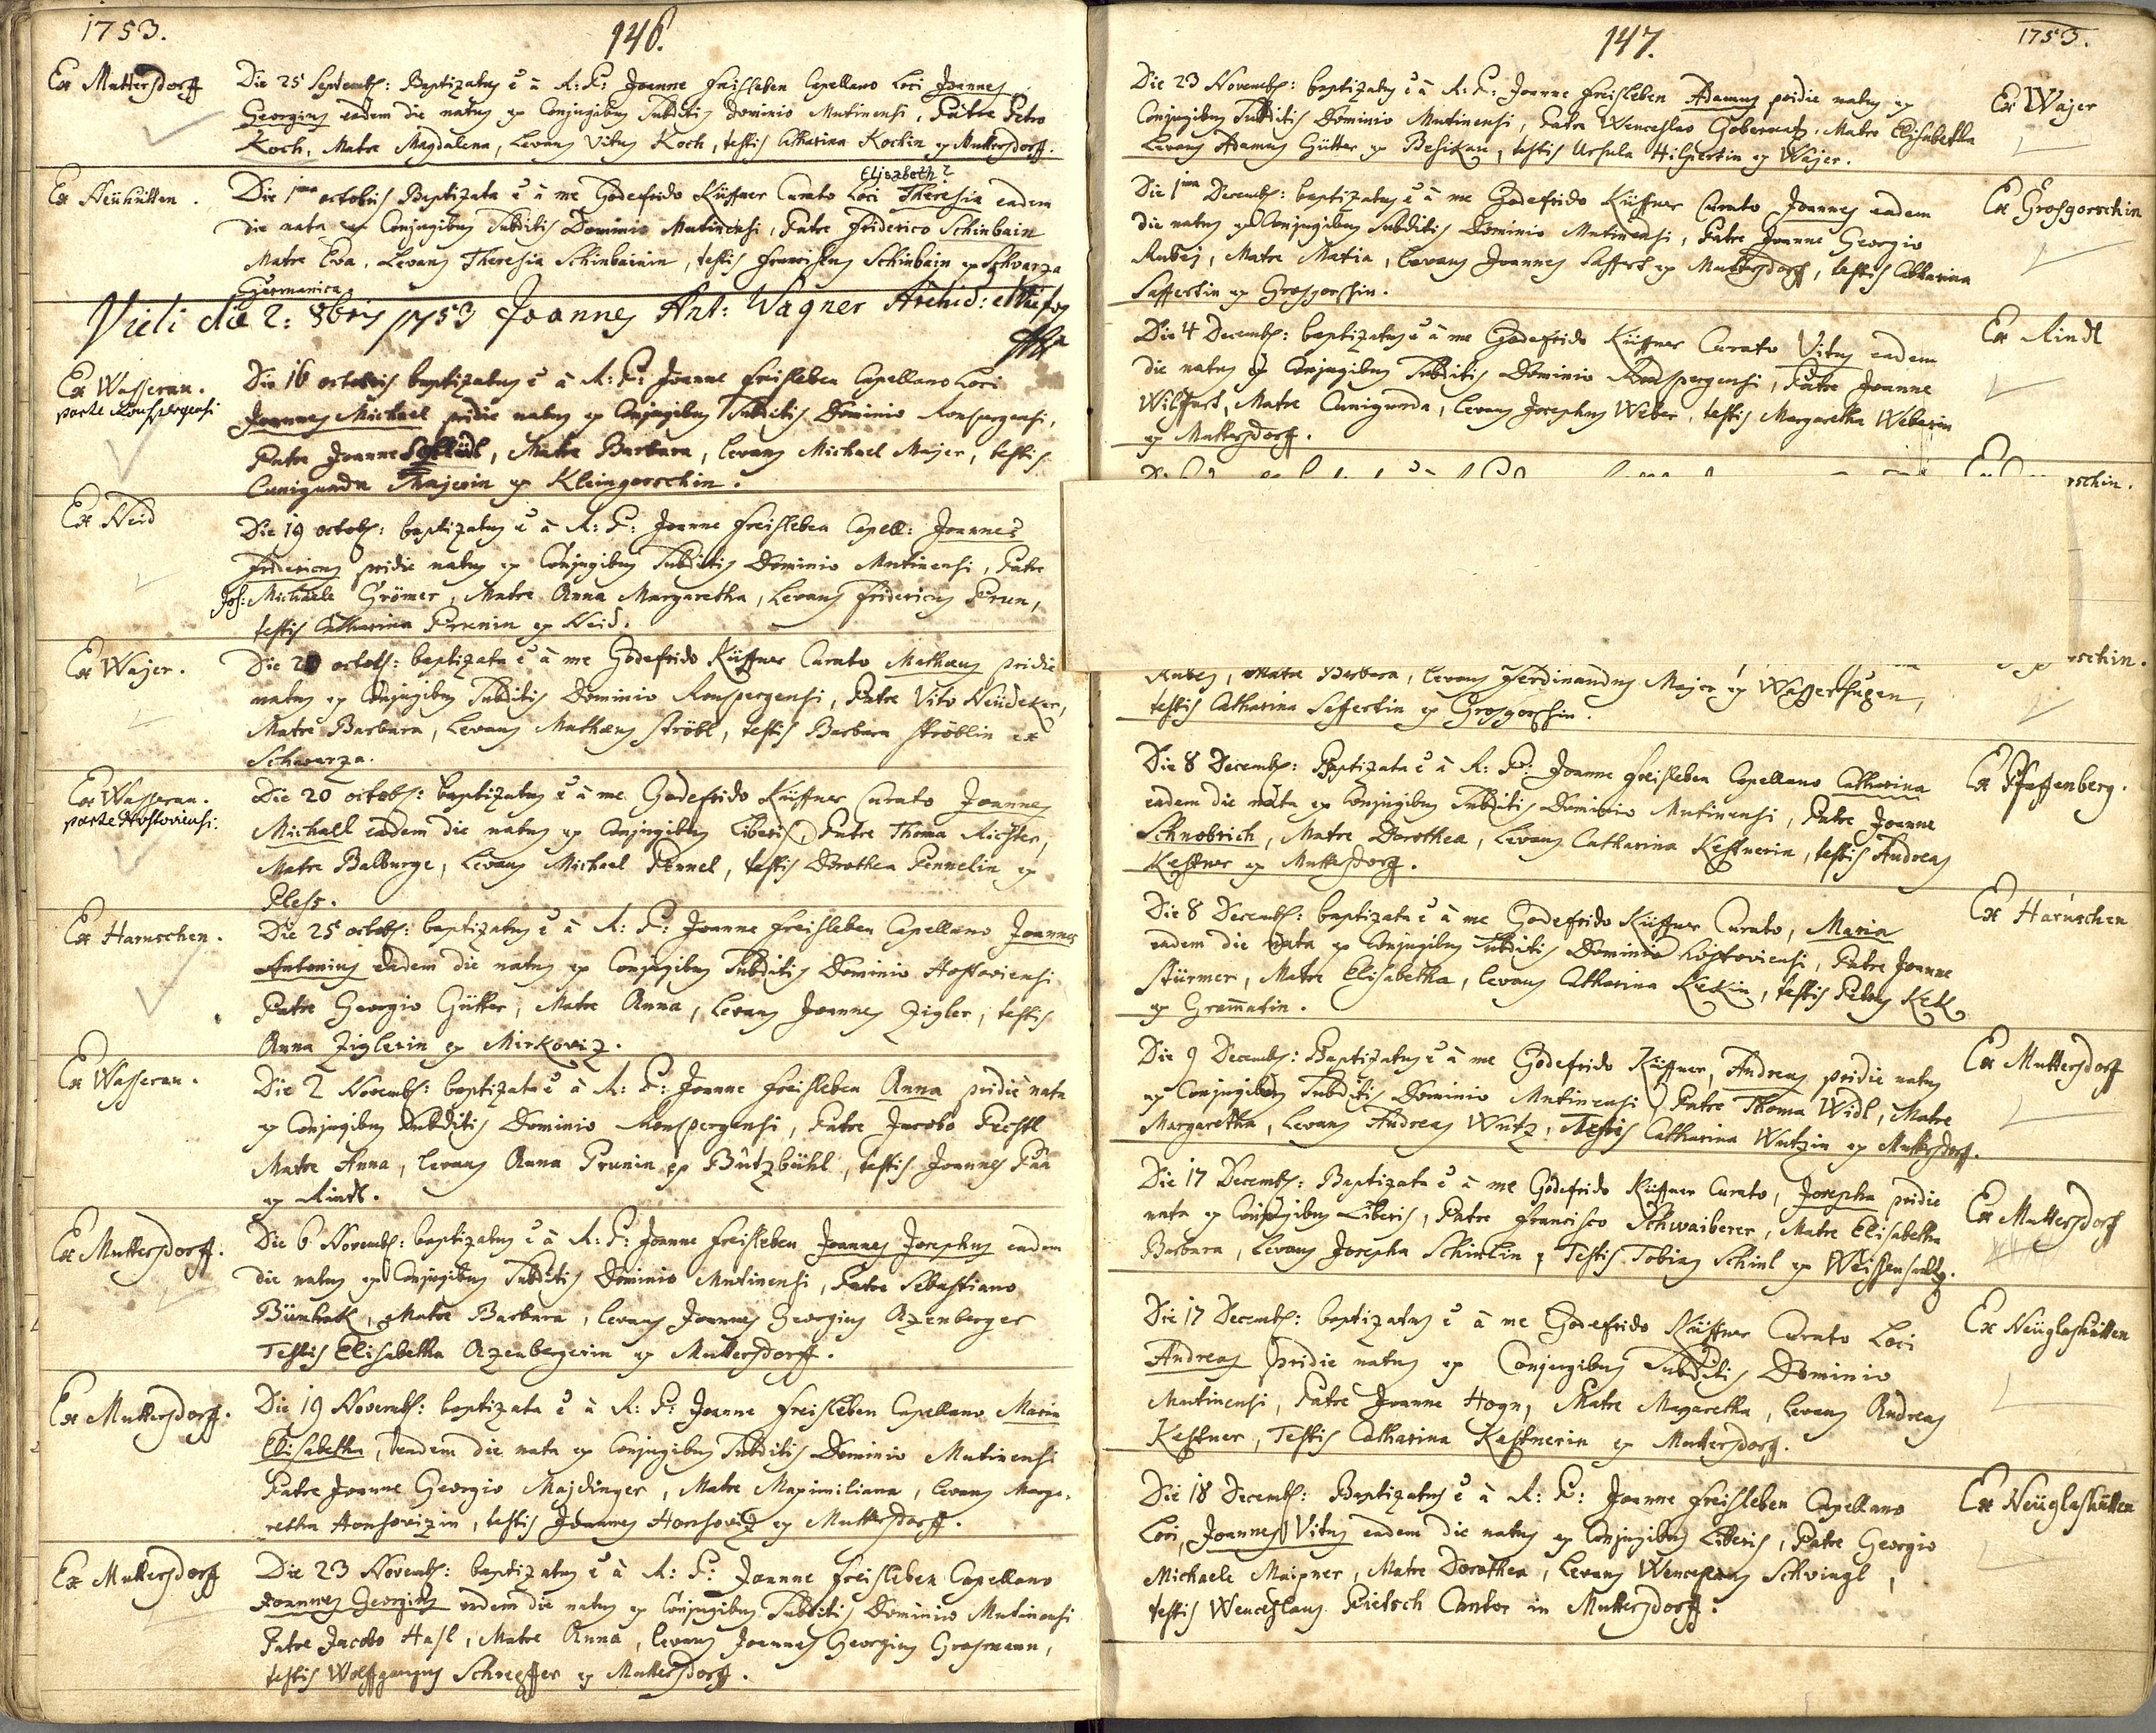 1753.
146.
Ex Muttersdorff
Die 25 Septemb: Baptizatus ē à R: P: Joanne Freisleben Capellano Loci Joannes
Georgius eadem die natus ex Conjugibus Subditis Dominio Mutinensi, Patre Petro
Koch, Matre Magdalena, Levans Vitus Koch, testis Catharina Kochin ex Muttersdorff.
Ex Neühütten.
Elisabeth?
Die 1ma octobris Baptizata ē à me Godefrido Küffner Curato Loci Theresia eadem
die nata ex Conjugibus Subditis Dominio Mutinensi, Patre Friderico Schinbain
Matre Eva, Levans Theresia Schinbainin, testis Franciscus Schinbain ex Schwarza
Germanica.
Vidi die 2: 8bris 1753 Joannes Ant: Wagner Archid:
Ex Wasserau.
parte Ronspergensi
Die 16 octobris baptizatus ē à R: P: Joanne Freisleben Capellano Loci
Joannes Michael pridie natus ex Conjugibus Subditis Dominio Ronspergensi,
Patre Joanne, Matre Barbara, levans Michael Majer, testis
Cunigunda Majerin ex Kleingorschin.
Ex Neid
Die 19 octob: baptizatus ē à R: P: Joanne Freisleben Capell: Joannes
Fridericus pridie natus ex Conjugibus Subditis Dominio Mutinensi, Patre
Jos: Michaele Grömer, Matre Anna Margaretha, Levans Fridericus Prun,
testis Catharina Prunin ex Neid.
Ex Wajer.
Die 20 octob: baptizatus ē à me Godefrido Küffner Curato Mathæus pridie
natus ex Conjugibus Subditis Dominio Ronspergensi, Patre Vito Neüdeker,
Matre Barbara, Levans Mathæus ströbl, testis Barbara ströblin ex
Schwarza.
Ex Wasserau.
parte Hostoviensi.
Die 20 octob: baptizatus ē à me Godefrido Küffner Curato Joannes
Michael eadem die natus ex Conjugibus Liberis, Patre Thoma Richter,
Matre Balburge, Levans Michael Pennel, testis Dorothea Pennelin ex
Pless.
Ex Haruschen.
Die 25 octob: baptizatus ē à R: P: Joanne Freisleben Capellano Joannes
Antonius eadem die natus ex Conjugibus Subditis Dominio Hostoviensi
Patre Georgio Gütter, Matre Anna, Levans Joannes Zigler, testis
Anna Ziglerin ex Mirkoviz.
Ex Wasserau.
Die 2 Novemb: baptizata ē à R: P: Joanne Freisleben Anna pridie nata
ex Conjugibus Subditis Dominio Ronspergensi, Patre Jacobo Pechtl
Matre Anna, levans Anna Prunin ex Putzbühl, testis Joannes
ex Rindl.
Ex Muttersdorff.
Die 6 Novemb: baptizatus ē à R: P: Joanne Freisleben Joannes Josephus eadem
die natus ex Conjugibus Subditis Dominio Mutinensi, Patre Sebastiano
Matre Barbara, levans Joannes Georgius Azenberger
Testis Elisabetha Azenbergerin ex Muttersdorff.
Ex Muttersdorff.
Die 19 Novemb: baptizata ē à R: P: Joanne Freisleben Capellano Maria
Elisabetha, eadem die nata ex Conjugibus Subditis Dominio Mutinensi
Patre Joanne Georgio Majdinger, Matre Maximiliana, levans Marga-
retha Honsovizin, testis Joannes Honsoviz ex Muttersdorff.
Ex Muttersdorff
Die 23 Novemb: baptizatus ē à R: P: Joanne Freisleben Capellano
Joannes Georgius eadem die natus ex Conjugibus Subditis Dominio Mutinensi
Patre Jacobo Hasl, Matre Anna, levans Joannes Georgius Grasmann,
testis Wolffgangus Schrepffer ex Muttersdorff.
147.
1753.
Die 23 Novemb: baptizatus ē à R: P: Joanne Freisleben Adamus pridie natus ex
Conjugibus Subditis Dominio Mutinensi, Patre Wenceslao Gobernatz, Matre Elisabetha
Levans Adamus Gütter ex Besikau, testis Ursula Hilpertin ex Wajer.
Ex Wajer
Die 1ma Decemb: baptizatus ē à me Godefrido Küffner Curato Joannes eadem
die natus ex Conjugibus Subditis Dominio Mutinensi, Patre Joanne Georgio
Rubej, Matre Maria, levans Joannes Saffert ex Muttersdorff, testis Catharina
Saffertin ex Grosgorschin.
Ex Grosgorschin
Die 4 Decemb: baptizatus ē à me Godefrido Küffner Curato Vitus eadem
die natus ex Conjugibus Subditis Dominio Ronspergensi, Patre Joanne
Wilfert, Matre Cunigunda, levans Josephus Weber, testis Margaretha Weberin
ex Muttersdorff.
Ex Rindl
rschin.
rschin.
Rubej, Matre Barbara, levans Ferdinandus Majer ex Wassersuppen,
testis Catharina Saffertin ex Grosgorschin.
Die 8 Decemb: Baptizata ē à R: P: Joanne Freisleben Capellano Catharina
eadem die nata ex Conjugibus Subditis Dominio Mutinensi, Patre Joanne
Schnobrich, Matre Dorothea, Levans Catharina Kestnerin, testis Andreas
Kestner ex Muttersdorff.
Ex Pfaffenberg.
Die 8 Decemb: baptizata ē à me Godefrido Küffner Curato, Maria
eadem die nata ex Conjugibus Subditis Dominio Hostoviensi, Patre Joanne
Stürmer, Matre Elisabetha, levans Catharina, testis Petrus
ex Gramatin.
Ex Haruschen
Die 9 Decemb: Baptizatus ē à me Godefrido Küffner, Andreas pridie natus
ex Conjugibus Subditis Dominio Mutinensi, Patre Thoma Widl, Matre
Margaretha, Levans Andreas Wutz, Testis Catharina Wutzin ex Muttersdorff.
Ex Muttersdorff
Die 17 Decemb: Baptizata ē à me Godefrido Küffner Curato, Josepha pridie
nata ex Conjugibus Liberis, Patre Francisco Schwaiberer, Matre Elisabetha
Barbara, Levans Josepha Schinlin, Testis Tobias Schinl ex Weissensultz.
Ex Muttersdorff
Die 17 Decemb: baptizatus ē à me Godefrido Küffner Curato Loci
Andreas pridie natus ex Conjugibus Subditis Dominio
Mutinensi, Patre Joanne Hogn, Matre Margaretha, levans Andreas
Kestner, Testis Catharina Kestnerin ex Muttersdorff.
Ex Neüglashütten
Die 18 Decemb: Baptizatus ē à R: P: Joanne Freisleben Capellano
Loci, Joannes Vitus eadem die natus ex Conjugibus Liberis, Patre Georgio
Michaele Maixner, Matre Dorothea, Levans Wenceslaus Schwingl,
testis Wenceslaus Pietsch Cantor in Muttersdorff.
Ex Neüglashütten